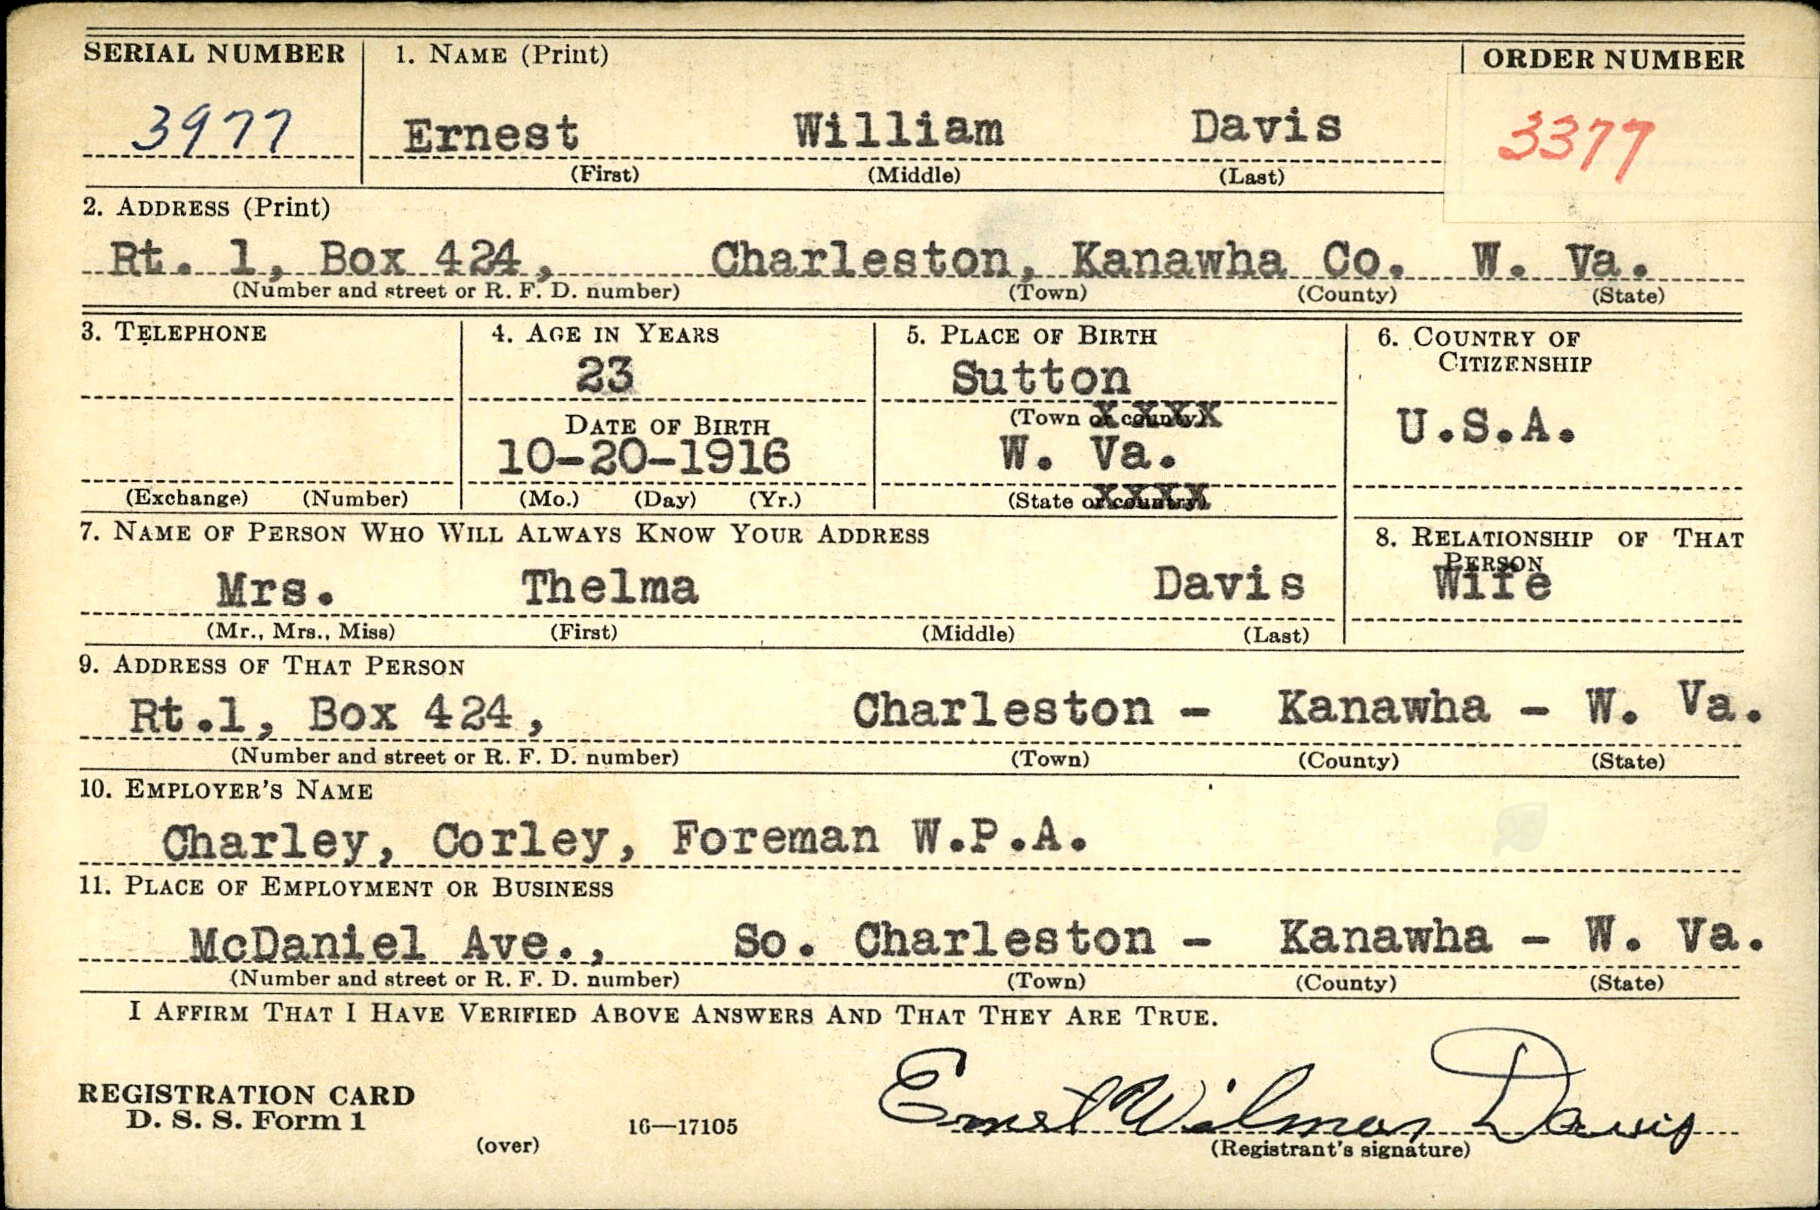 SERIAL NUMBER 1. NAME (Print) ORDER NUMBER
3977 Ernest William Davis 3377
(First) (Middle) (Last)
2. ADDRESS (Print)
Rt. 1, Box 424, Charleston, Kanawha Co. W. Va.
(Number and street or R. F. D. number) (Town) (County) (State)
3. TELEPHONE 4. AGE IN YEARS 5. PLACE OF BIRTH 6. COUNTRY OF
CITIZENSHIP
23 Sutton
(Town or county)
DATE OF BIRTH U.S.A.
10-20-1916 W. Va.
(Exchange) (Number) (Mo.) (Day) (Yr.) (State or country)
7. NAME OF PERSON WHO WILL ALWAYS KNOW YOUR ADDRESS 8. RELATIONSHIP OF THAT
PERSON
Mrs. Thelma Davis Wife
(Mr., Mrs., Miss) (First) (Middle) (Last)
9. ADDRESS OF THAT PERSON
Rt.1, Box 424, Charleston - Kanawha - W. Va.
(Number and street or R. F. D. number) (Town) (County) (State)
10. EMPLOYER'S NAME
Charley, Corley, Foreman W.P.A.
11. PLACE OF EMPLOYMENT OR BUSINESS
McDaniel Ave., So. Charleston - Kanawha - W. Va.
(Number and street or R. F. D. number) (Town) (County) (State)
I AFFIRM THAT I HAVE VERIFIED ABOVE ANSWERS AND THAT THEY ARE TRUE.
REGISTRATION CARD
D. S. S. Form 1
(over) 16—17105
Ernest Wilmer Davis
(Registrant's signature)